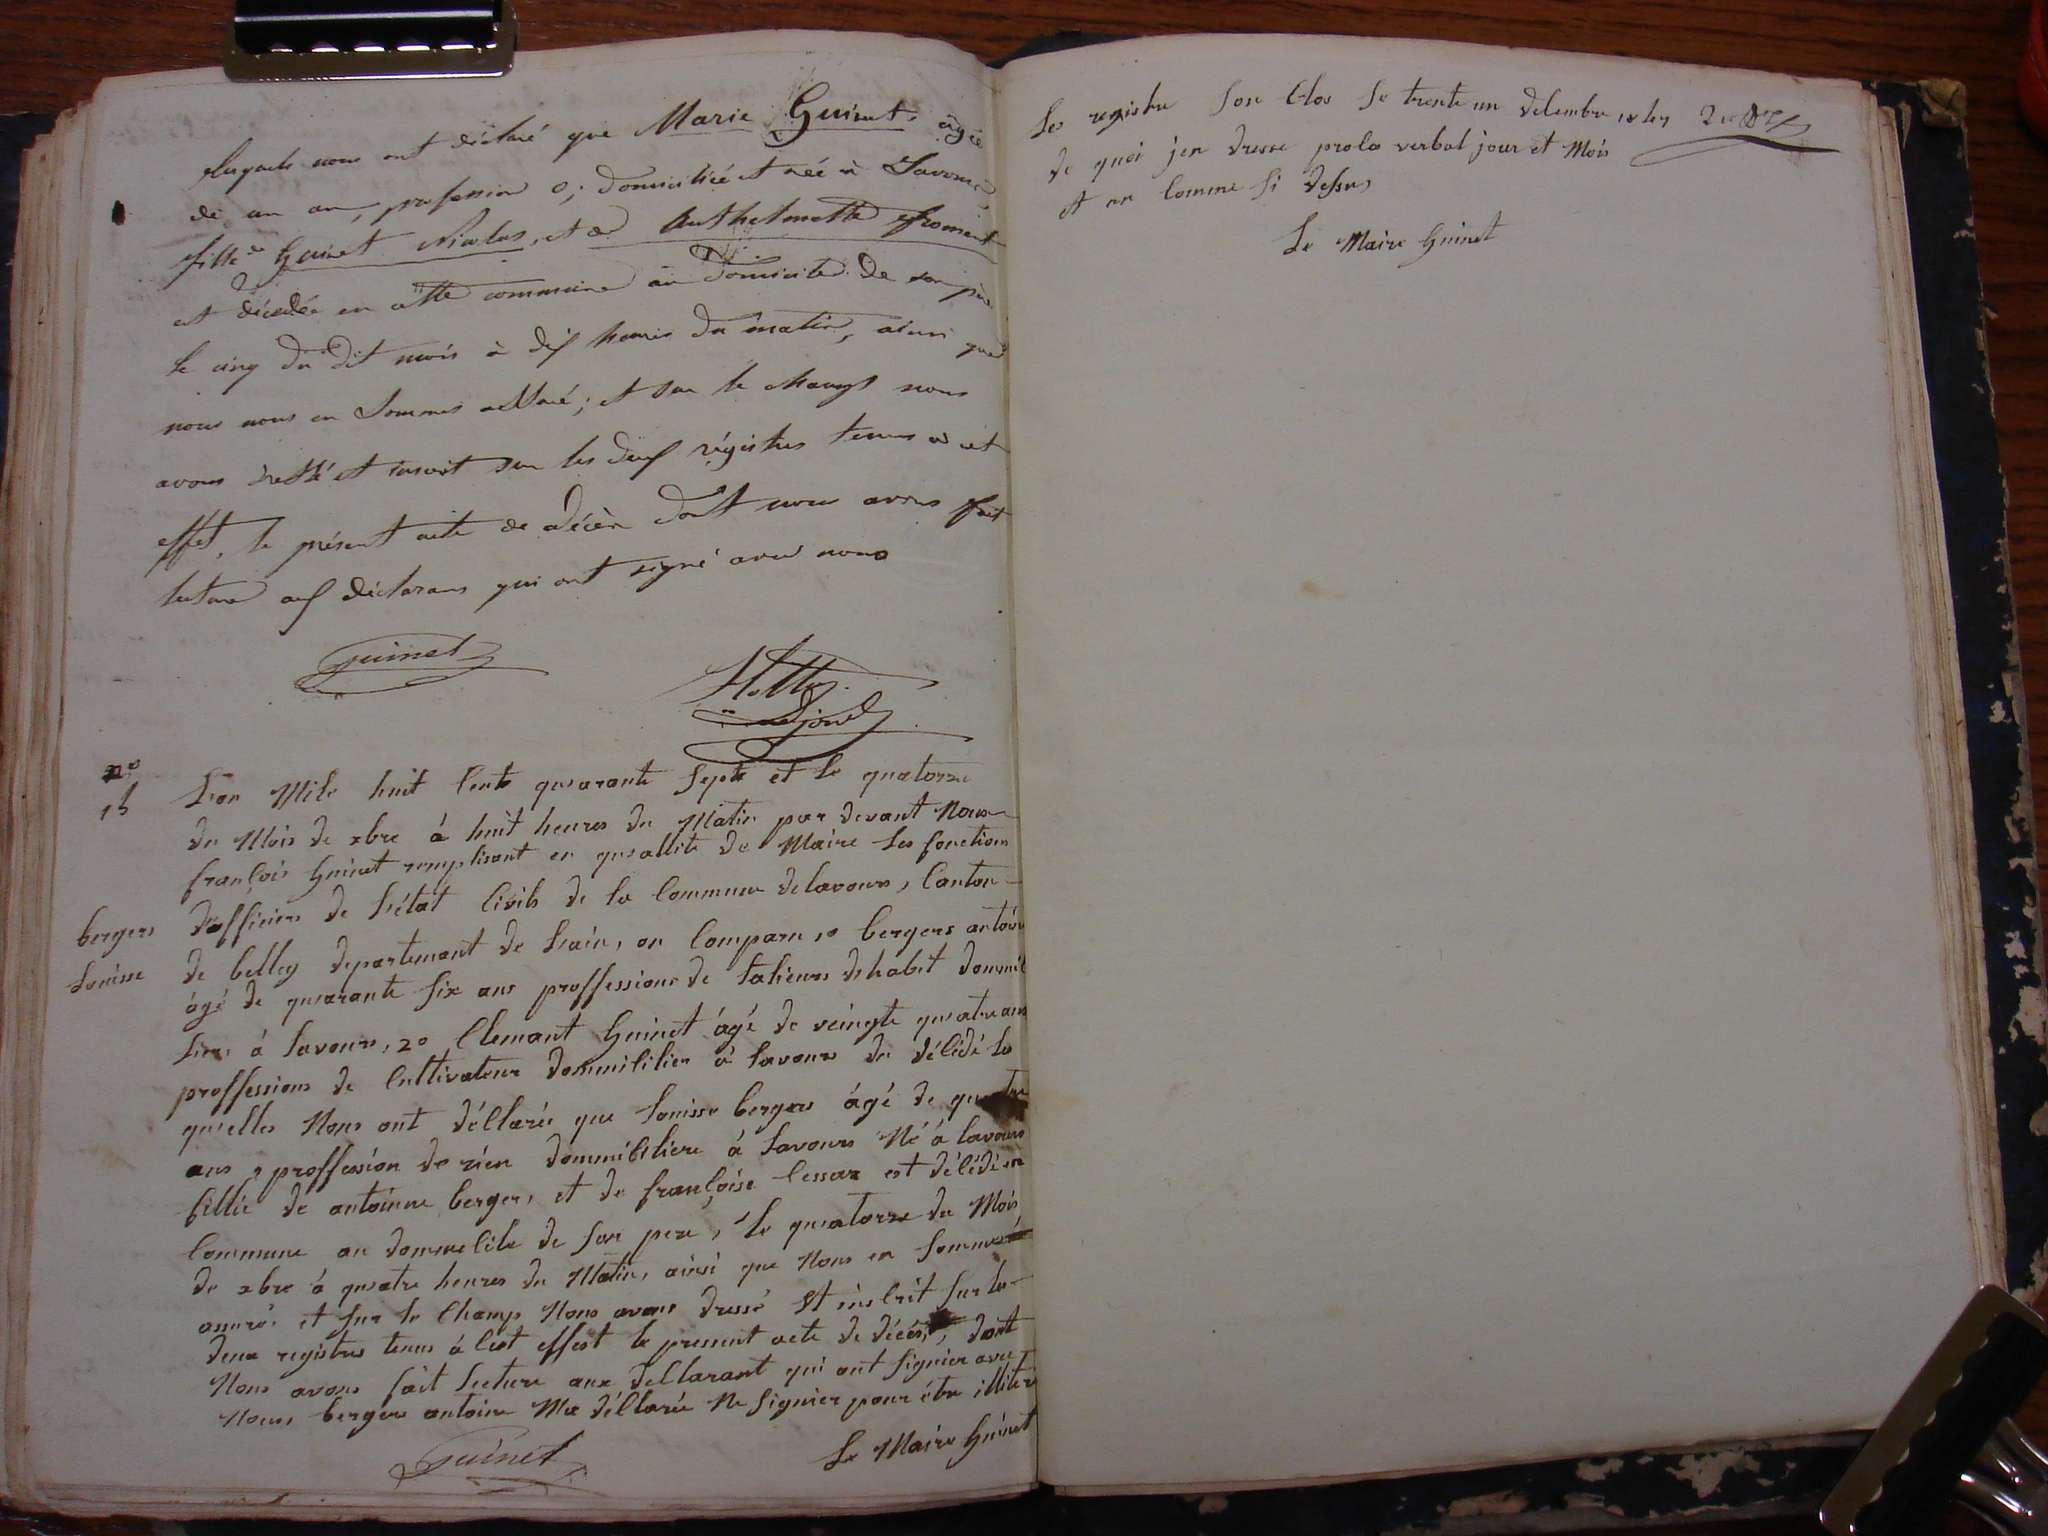 lesquels nous ont déclaré que Marie Guinet, âgée
de un an, profession o; domiciliée et née à Lavours,
fille de Guinet Nicolas, et de Anthelmette froment
est décédée en cette commune au domicile de son père
le cinq du dit mois à dix heures du matin, ainsi que
nous nous en sommes assuré; et sur le champ nous
avons dressé et inscrit sur les deux régistres tenus à cet
effet, le présent acte de décès dont nous avons fait
lecture aux déclarans qui ont signé avec nous
Guinet
adjoint
no
15
Lan Mile huit cents quarante septe et le quatorze
du Mois de xbre à huit heures du Matin par devant Nous
françois Guinet remplisant en qualite de Maire les fonctions
dofficiers de Létat Civils de la Commune delavours, Canton
bergers
Louisse
de belley departemant de Lain, on Comparu, 1o bergers antoine
âgé de quarante six ans proffessions de talieurs dhabit dommici
liers à Lavours, 2o Clemant Guinet âgé de veingte quatre ans
proffessions de Cultivateur dommicilier à Lavours du décédé les
quelles Nous ont déclarée que Louisse bergers âgé de quatre
ans, proffession de rien dommiciliere à Lavours Né à lavours
fillie de antoinne berger, et de françoise Cessar est décédé en
Commune au dommecile de son pere, le quatorze du Mois
de xbre à quatre heures du Matin, ainsi que Nous en sommes
assuré, et sur le Champ Nous avons dressé et inscrit sur les
deux registres tenus à Cest effest le present acte de décés, dont
Nous avons fait Lecture aux declarant qui ont signier avec
Nous bergers antoine Ma déclarée Ne signier pour étre illitere
Guinet
Le Maire Guinet
Les registre son Clos Le trente un decembre 1847
de quoi jen dresse procès verbal jour et Mois
et an Comme si dessus
Le Maire Guinet